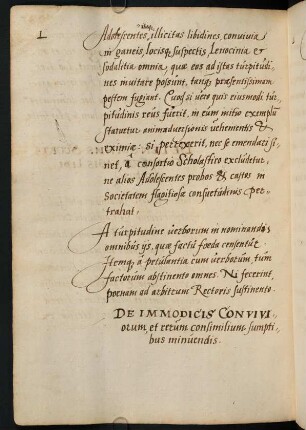 1
itaq.
Adolescentes, illicitas libidines, conuiuia
in ganeis, locisq. suspectis, Lenocinia et
sodalitia omnia, quæ eos ad istas turpitudi-
nes inuitare possunt, tanq. præsentissimam
pestem fugiant. Quod si uero quis eiusmodi tur-
pitudinis reus fuerit, in eum mitio exemplũ
statuetur animaduersionis uehementis &
eximiæ: si perrexerit, nec se emendari si-
net, à consortio Scholastico excludetur,
ne alios Adolescentes probos & castos in
Societatem flagitiosæ consuetudinis per-
trahat.
A turpitudine uerborum in nominandis
omnibus ijs, quæ factu foeda censentur
Itemq. à petulantia cum uerborum tum
factorum abstinento omnes. Ni fecerint,
poenam ad arbitrium Rectoris sustinento.
DE IMMODICIS CONVIVI-
orum, et rerum consimilium sumpti-
bus minuendis.